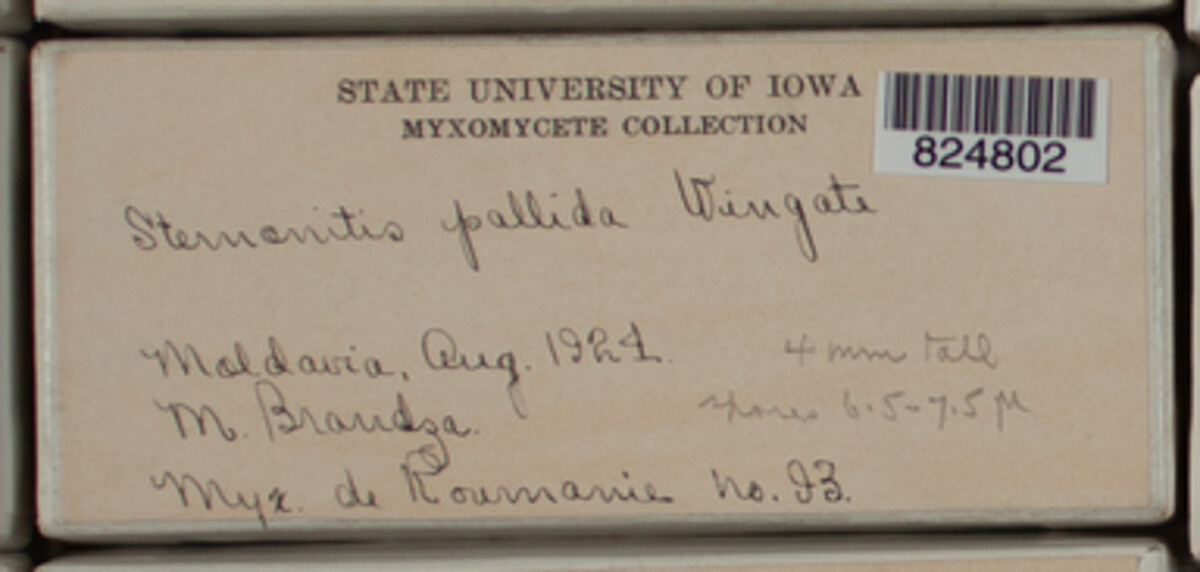 STATE UNIVERSITY OF IOWA
MYXOMYCETE COLLECTION
824802
Stemonitis pallida Wingate
Moldavia, Aug. 1924.
4 mm tall
M. Brandza.
spores 6.5-7.5 μ
Myx. de Roumanie no. 93.